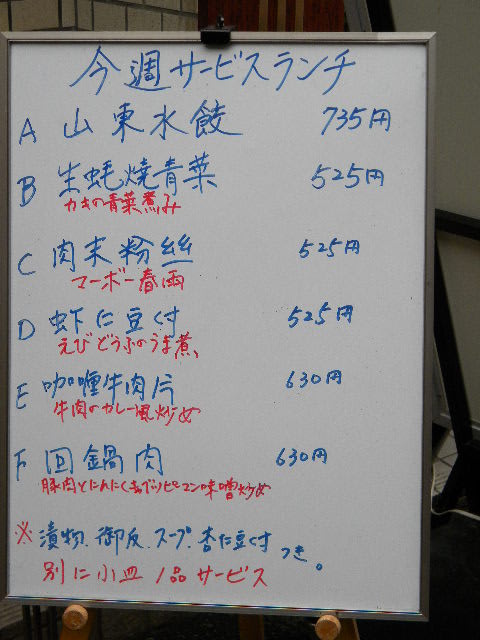 今週サービスランチ
A 山東水餃 735円
B 生蚝焼青菜 525円
カキの青菜煮み
C 肉末粉絲 525円
マーボー春雨
D 虾仁豆付 525円
えびどうふのうま煮
E 咖喱牛肉片 630円
牛肉のカレー風炒め
F 回鍋肉 630円
豚肉とにんにくの芽ピーマン味噌炒め
※漬物、御反、スープ、杏仁豆付つき。
別に小皿1品サービス